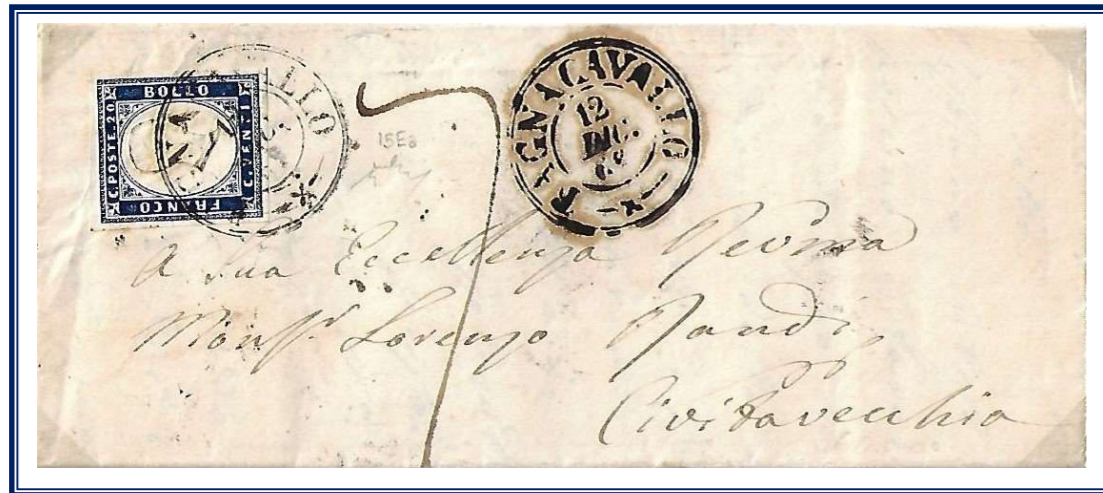 BOLLO
C. POSTE. 20
C. VENTI
FRANCO
BAGNACAVALLO
12
DIC.
7
A Sua Eccellenza Revma
Monsr. Lorenzo Randi
Civitavecchia